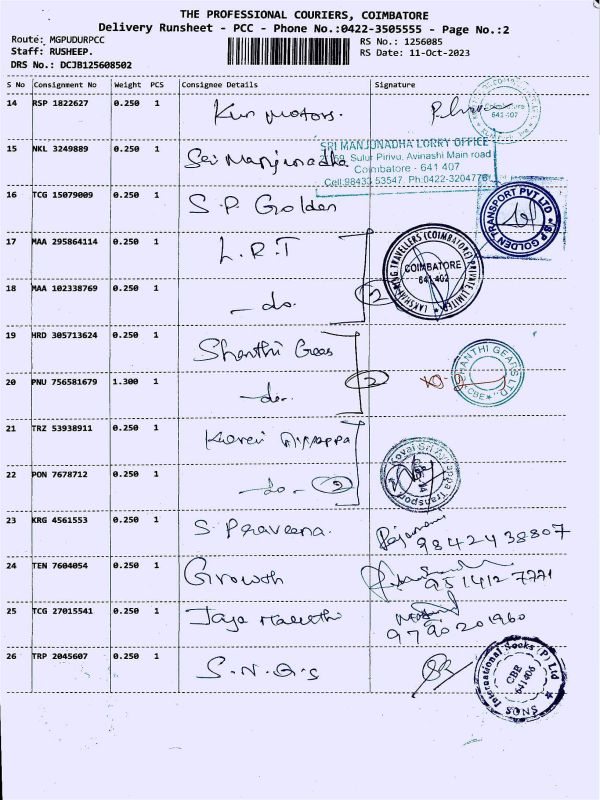 THE PROFESSIONAL COURIERS, COIMBATORE
Delivery Runsheet - PCC - Phone No.:0422-3505555 - Page No.:2
Route: MGPUDURPCC
RS No.: 1256085
Staff: RUSHEEP.
RS Date: 11-Oct-2023
DRS No.: DCJB125608502
S No Consignment No Weight PCS Consignee Details Signature
14 RSP 1822627 0.250 1 Kun Motors.
Coimbatore
641 407
15 NKL 3249889 0.250 1 Sri Manjunadha
SRI MANJUNADHA LORRY OFFICE
Sulur Pirivu, Avinashi Main road
Coimbatore - 641 407
Cell:98433 53547. Ph:0422-3204776
16 TCG 15079009 0.250 1 S.P Golden
S.P GOLDEN TRANSPORT PVT LTD
17 MAA 295864114 0.250 1 L.R.T
TRAVELLERS (COIMBATORE) PRIVATE LIMITED
COIMBATORE
641 402
18 MAA 102338769 0.250 1 - do. 2
19 HRD 305713624 0.250 1 Shanthi Gears
SHANTHI GEARS LTD.
CBE
20 PNU 756581679 1.300 1 - do - 2
21 TRZ 53938911 0.250 1 Kovai Ayyappa
Kovai Sri Ayyappa Transport
22 PON 7678712 0.250 1 - do - 2
23 KRG 4561553 0.250 1 S. Praveena.
98424 38807
24 TEN 7604054 0.250 1 Growth
951412 7771
25 TCG 27015541 0.250 1 Jaya Maruthi
9790201960
26 TRP 2045607 0.250 1 S.N.Q.S
SNQS International Socks (P) Ltd
CBE
641406